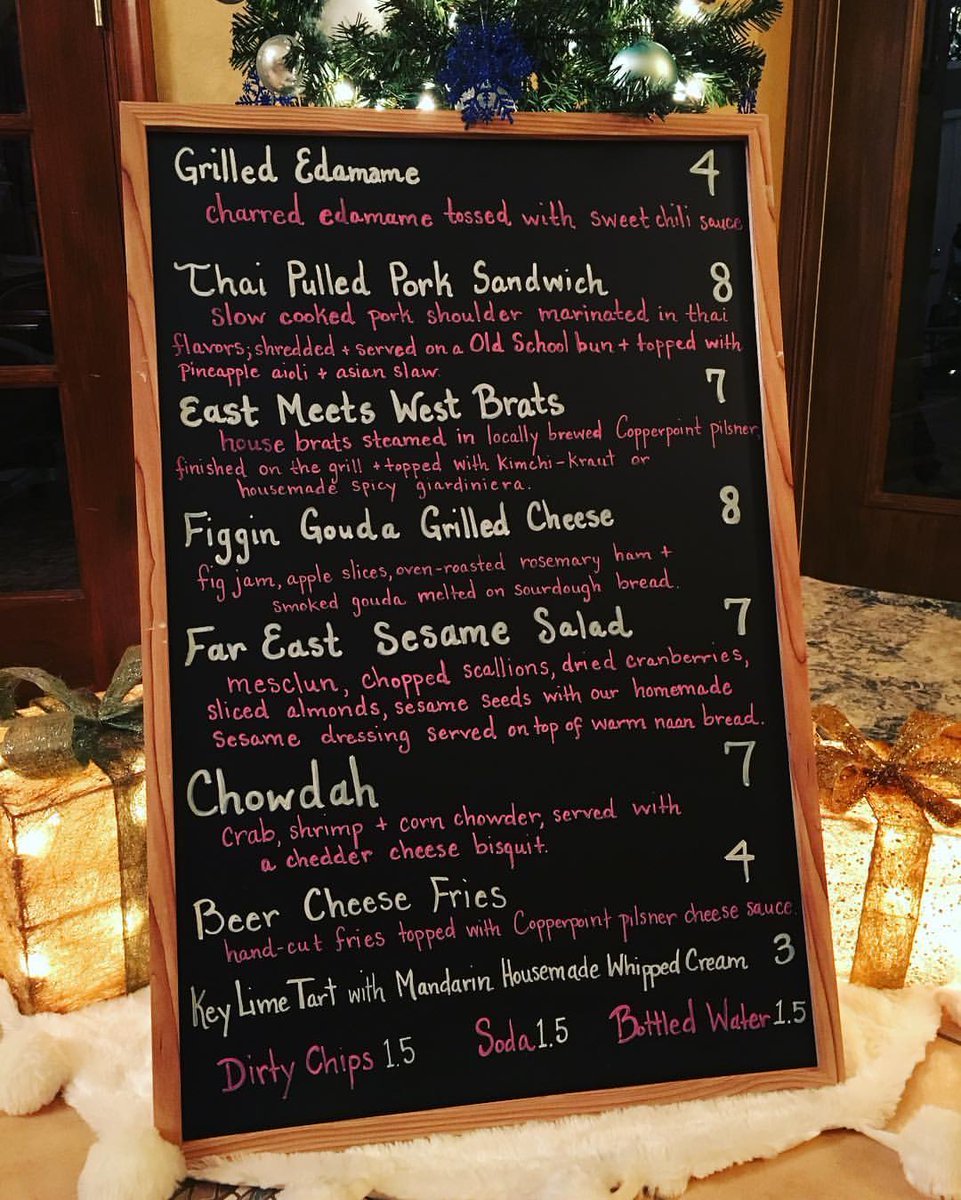 Grilled Edamame 4
charred edamame tossed with sweet chili sauce
Thai Pulled Pork Sandwich 8
slow cooked pork shoulder marinated in thai
flavors; shredded + served on a Old School bun + topped with
pineapple aioli + asian slaw.
East Meets West Brats 7
house brats steamed in locally brewed Copperpoint pilsner,
finished on the grill + topped with kimchi-kraut or
housemade spicy giardiniera.
Figgin Gouda Grilled Cheese 8
fig jam, apple slices, oven-roasted rosemary ham +
smoked gouda melted on sourdough bread.
Far East Sesame Salad 7
mesclun, chopped scallions, dried cranberries,
sliced almonds, sesame seeds with our homemade
sesame dressing served on top of warm naan bread.
Chowdah 7
crab, shrimp + corn chowder, served with
a chedder cheese bisquit.
Beer Cheese Fries 4
hand-cut fries topped with Copperpoint pilsner cheese sauce.
Key Lime Tart with Mandarin Housemade Whipped Cream 3
Dirty Chips 1.5 Soda 1.5 Bottled Water 1.5